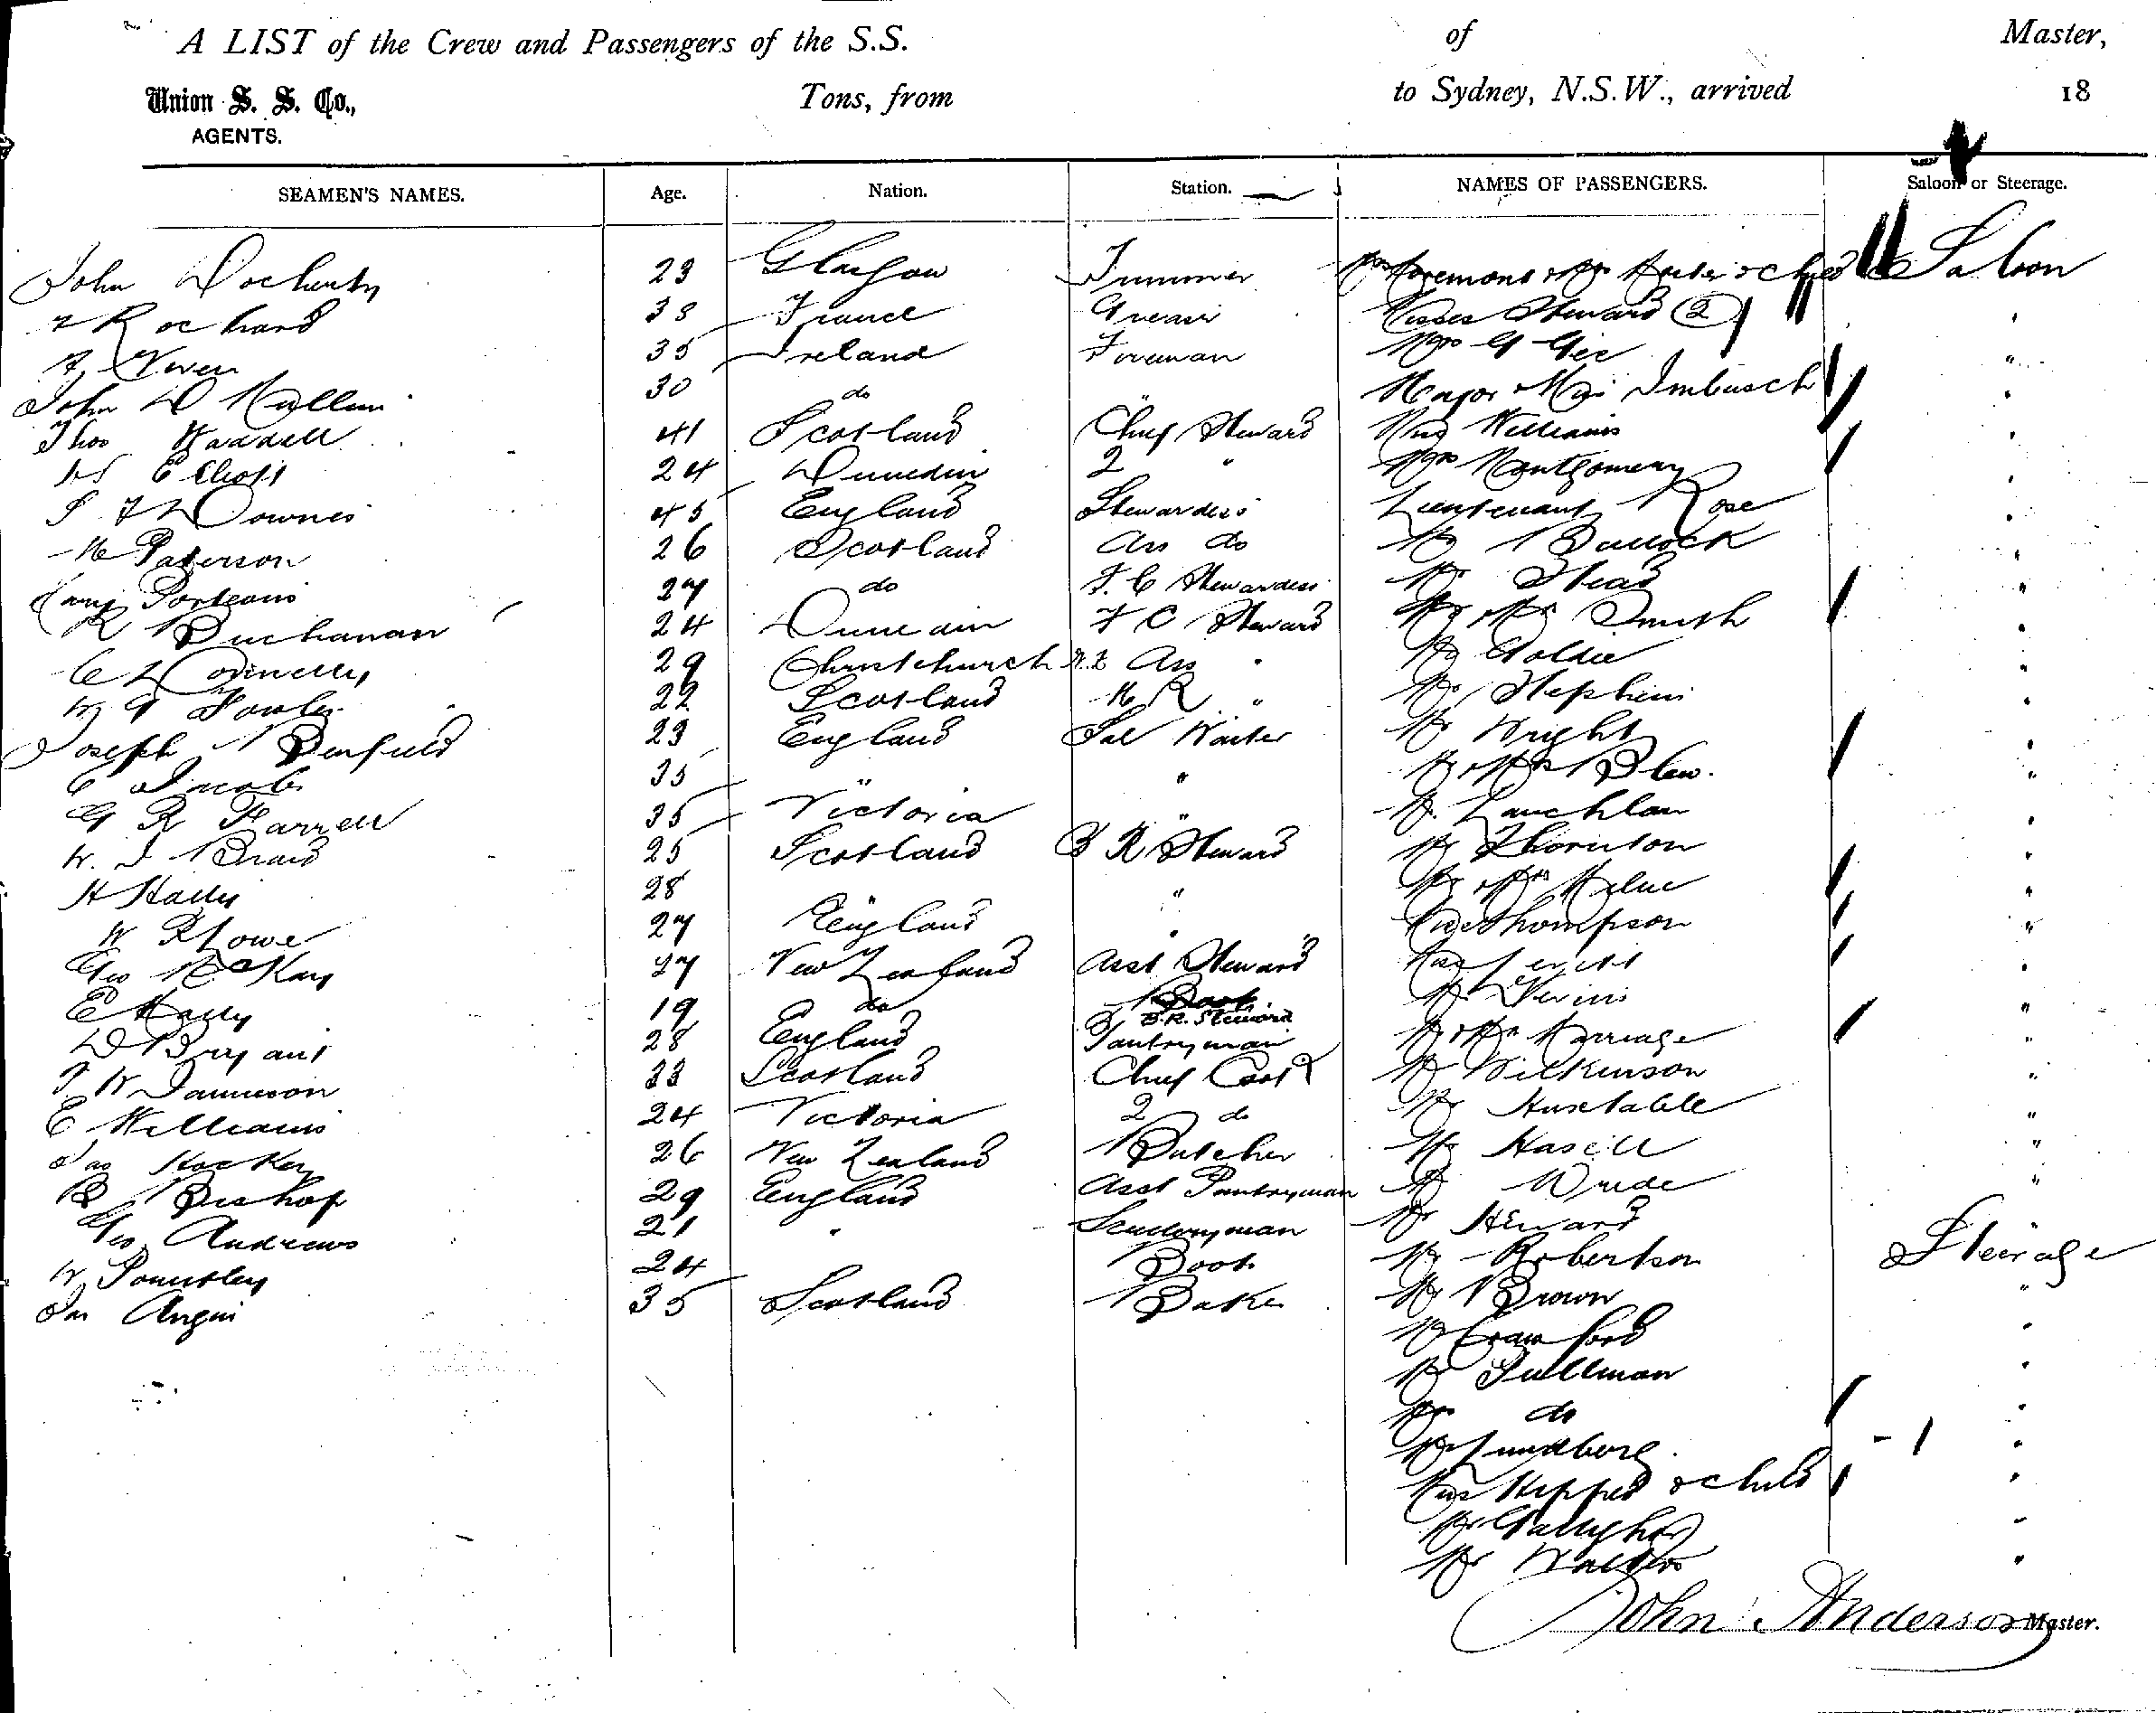 A LIST of the Crew and Passengers of the S.S. of Master,
Union S. S. Co., Tons, from to Sydney, N.S.W., arrived 18
AGENTS.
SEAMEN'S NAMES. Age. Nation. Station. NAMES OF PASSENGERS. Saloon or Steerage.
John Docherty 23 Glasgow Trimmer Saloon
38 France Greaser Misses Steward (2) "
A 35 Ireland Foreman Mrs G Gee "
John 30 do " Major Mrs Imbusch "
Thos Waddell 41 Scotland Chief Steward Miss Williams "
Elliott 24 Dunedin 2 " Mrs Montgomery "
Downes 45 England Stewardess Lieutenant Rose "
Paterson 26 Scotland Ass do Mr Bullock "
Porteous 27 do F. C Stewardess Mr Head "
R Buchanan 24 Dunedin F C Steward Mr & Mrs Smith "
Connelly 29 Christchurch N.Z Ass " Mr Goldie "
W G Fowler 22 Scotland " Mr Stephens "
Joseph Benfield 23 England Sal Waiter Mr Wright "
C Jacobs 35 " " Mr & Mrs Blew. "
G R Farrell 35 Victoria " Mr Lauchlan "
W. J Braid 25 Scotland B R Steward Mr Thornton "
H Hally 28 " " Mr & Mrs Milne "
W Rowe 27 England " Miss Thompson "
Geo McKay 27 New Zealand Asst Steward Miss "
E Hally 19 do B.R. Steward Mr Nevins "
D Bryant 28 England Pantryman Mr & Mrs Marriage "
Jamieson 33 Scotland Chief Cook Mr Wilkinson "
E Williams 24 Victoria 2 do Mr Huxtable "
Jas 26 New Zealand Butcher Mr Hasell "
B Bishop 29 England Asst Pantryman Mr Wride "
Geo Andrews 21 " Sculleryman Mr Heward "
W 24 Boots Mr Robertson Steerage
Jas Angus 35 Scotland Baker Mr Brown "
Mr Crawford "
Mr Pullman "
Mrs do "
Mr Lundberg "
& child "
Mr Gallagher "
Mr Walters "
John Anderson Master.